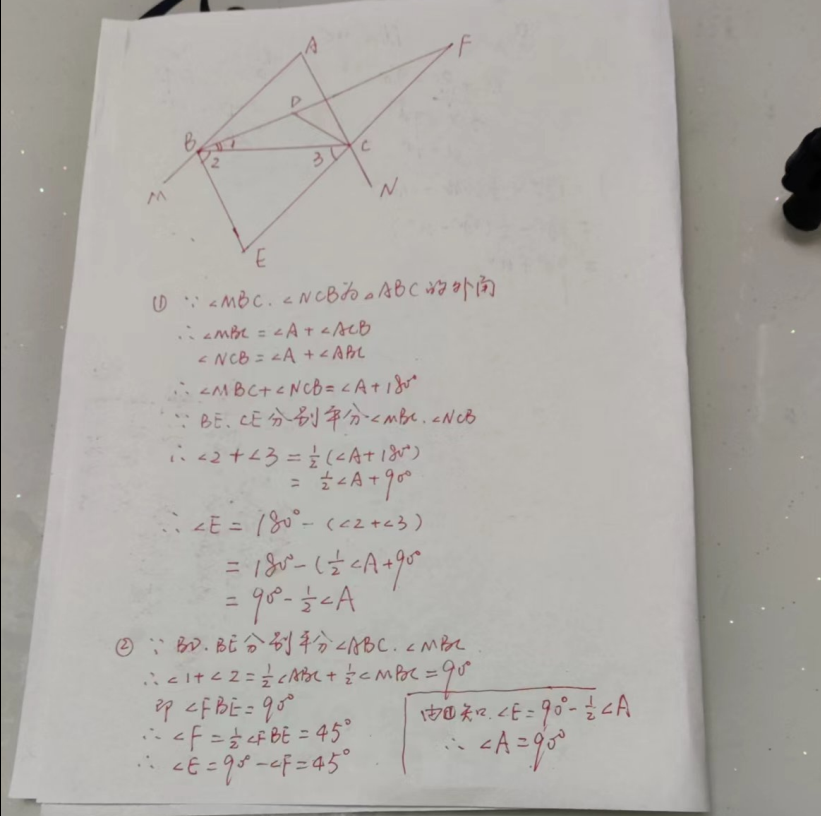 A
F
D
B
1
C
2
3
M
N
E
① ∵ ∠MBC. ∠NCB为△ABC的外角
∴ ∠MBC = ∠A + ∠ACB
∠NCB = ∠A + ∠ABC
∴ ∠MBC + ∠NCB = ∠A + 180°
∵ BE. CE分别平分∠MBC. ∠NCB
∴ ∠2 + ∠3 = ½(∠A + 180°)
= ½∠A + 90°
∴ ∠E = 180° - (∠2 + ∠3)
= 180° - (½∠A + 90°
= 90° - ½∠A
② ∵ BD. BE分别平分∠ABC. ∠MBC
∴ ∠1 + ∠2 = ½∠ABC + ½∠MBC = 90°
即 ∠FBE = 90°
∴ ∠F = ½∠FBE = 45°
∴ ∠E = 90° - ∠F = 45°
由①知. ∠E = 90° - ½∠A
∴ ∠A = 90°